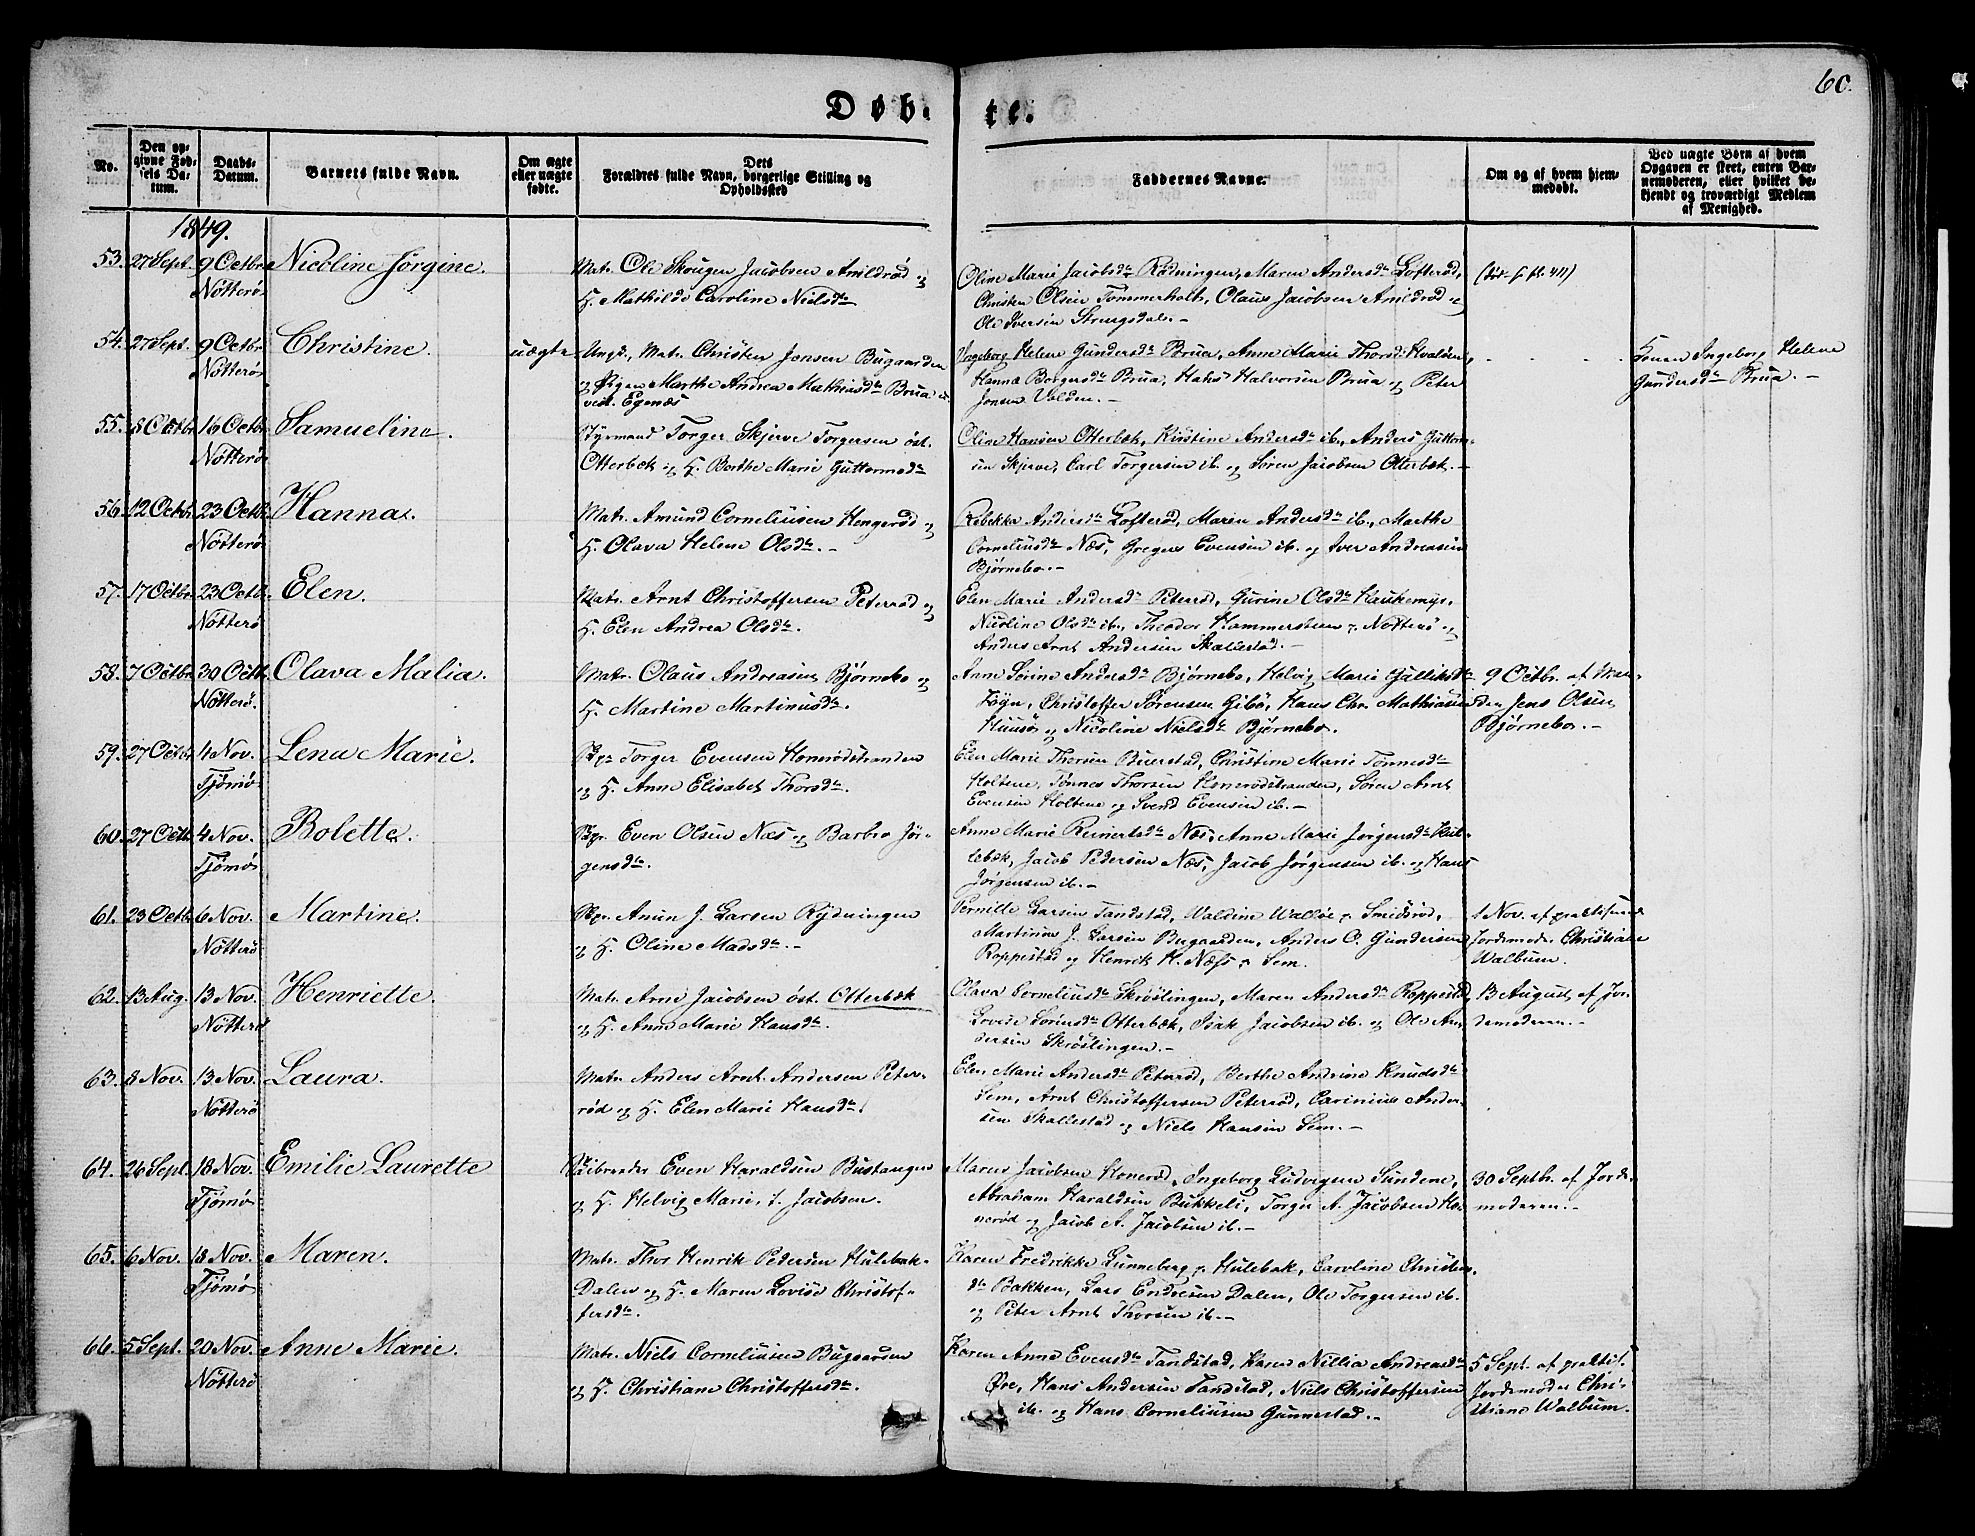 60.
Døb- te.
No.
Den op-
givne Fød-
sels Da-
tum.
Daabs-
Datum.
Barnets fulde Navn.
Om ægte
eller uægte
fødte.
Dets
Forældres fulde Navn, borgerlige Stilling og
Opholdssted
Faddernes Navne.
Om og af hvem hjem-
medøbt.
Ved uægte Børn af hvem
Opgaven er skeet, enten Bar-
nemoderen, eller hvilket be-
kjendt og troværdigt Medlem
af Menighed.
1849.
53. 27 Sept. 9 Octbr. Nicoline Jørgine.
Nötterö
Matr. Ole Skougen Jacobsen Arildrød og
H. Mathilde Caroline Nielsdr
Oline Marie Jacobsdr Rødningen, Maren Andersdr Lofterød,
Christen Olsen Tommerholt, Olaus Jacobsen Arildrød og
Ole Iversen Strengsdal.-
54. 27 Sept. 9 Octbr. Christine.
Nötterö
uægte
Ungk., Matr. Christen Jensen Bugaarden
og Pigen Marthe Andrea Mathiasdr Brua
vest. Egenæs
Ingeborg Helene Gundersdr Brua, Anne Marie Thorsdr Hvalöen,
Hanna Borgersdr Brua, Hans Halvorsen Brua og Peter
Jensen Valden.-
Konen Ingeborg Helene
Gundersdr Brua.-
55. 8 Octbr. 16 Octbr. Samueline.
Nötterö
Styrmand Torger Skjerve Torgersen öst.
Otterbek og H. Berthe Marie Guttormsdr
Oline Hansen Otterbek, Kirstine Andersdr ib., Anders Guttorm-
sen Skjerve, Carl Torgersen ib. og Søren Jacobsen Otterbek.-
56. 12 Octbr. 23 Octbr. Hanna.
Nötterö
Matr. Amund Corneliusen Hengerød og
H. Olava Helene Olsdr.-
Rebekka Andersdr Lofterød, Maren Andersdr ib., Marthe
Corneliusdr Næs, Gregers Evensen ib. og Iver Andreasen
Bjørnebo.-
57. 17 Octbr. 23 Octb. Elen.
Nötterö
Matr. Arnt Christoffersen Peterrød og
H. Elen Andrea Olsdr.
Elen Marie Andersdr Peterrød, Gurine Olsdr Haukemyr,
Nicoline Olsdr ib., Theodor Hammersteen p. Nötterö og
Anders Arnt Andersen Skallestad.-
58. 7 Octbr. 30 Octb. Olava Malia.
Nötterö.
Matr. Olaus Andreasen Bjørnebo og
H. Martine Martinusdr.
Anne Sørine Andersdr Bjørnebo, Helvig Marie Gulliksdr
Føyn, Christoffer Sørensen Gibö, Hans Chr. Mathiasen
Huusö og Nicoline Nielsdr Bjørnebo.
9 Octbr. af Man-
den Jens Olsen
Bjørnebo.-
59. 27 Octbr. 4 Nov. Lena Marie.
Tjømö
Torger Evensen Honerødstranden
og H. Anne Elisabet Thorsdr.
Elen Marie Thorsen Buerstad, Christine Marie Tönnesdr
Holtene, Tønnes Thorsen Honerødstranden, Søren Arnt
Evensen Holtene og Svend Evensen ib.-
60. 27 Octb. 4 Nov. Bolette.
Tjømö
Even Olsen Næs og Barbro Jör-
gensdr.
Anne Marie Reinertsdr Næs, Anne Marie Jørgensdr Hul-
lebæk, Jacob Pedersen Næs, Jacob Jørgensen ib. og Hans
Jørgensen ib.-
61. 23 Octb. 6 Nov. Martine.
Nötterö
Amun J. Larsen Rydningen
og H. Oline Madsdr.-
Pernille Larsen Tandstad, Waldine Wallöe p. Smidsrød,
Martinus J. Larsen Bugaarden, Anders O. Gundersen
Roppestad og Henrik H. Næss p. Sem.
1 Nov. af praktiserende
Jordemoder Christiane
Walbum.
62. 13 Aug. 13 Nov. Henriette.
Nötterö
Matr. Arne Jacobsen öst. Otterbek
og H. Anne Marie Hansdr.
Olava Corneliusdr Skröslingen, Maren Andersdr Roppestad,
Lovise Sørensdr Otterbek, Isak Jacobsen ib. og Ole An-
dersen Skröslingen.-
13 August, af Jor-
demoderen.-
63. 8 Nov. 13 Nov. Laura.
Nötterö
Matr. Anders Arnt Andersen Peter-
rød og H. Elen Marie Hansdr.
Elen Marie Andersdr Peterrød, Berthe Andrine Knudsdr
Sem, Arnt Christoffersen Peterrød, Carinius Ander-
sen Skallestad og Niels Hansen Sem.-
64. 26 Sept. 18 Nov. Emilie Laurette
Tjømö
Even Haraldsen Bustangen
og H. Helvig Marie, f. Jacobsen.
Maren Jacobsen Honerød, Ingeborg Ludvigsen Sundene,
Abraham Haraldsen Bukkeli, Torger A. Jacobsen Ho-
nerød og Jacob A. Jacobsen ib.-
30 Septb. af Jorde-
moderen.-
65. 6 Nov. 18 Nov. Maren.
Tjømö
Matr. Thor Henrik Pedersen Hulebak-
Dalen og H. Maren Lovise Christof-
fersdr.
Karen Fredrikke Lunneberg p. Hulebak, Caroline Christens-
dr Bakken, Lars Endresen Dalen, Ole Torgersen ib.
og Peter Arnt Thorsen ib.-
66. 5 Sept. 20 Nov. Anne Marie.
Nötterö
Matr. Niels Corneliusen Bugaarden
og H. Christiane Christoffersdr.
Karen Anne Evensdr Tandstad, Karen Nillia Andreasdr
Öre, Hans Andersen Tandstad, Niels Christoffersen
ib. og Hans Corneliusen Gunnestad.-
5 Sept. af praktis.
Jordemoder Chri-
stiane Walbum.